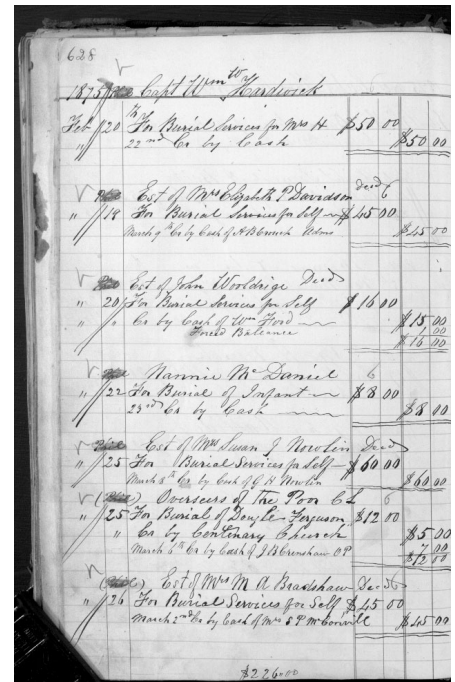 628
1875 Capt Wm Hardwick
Feb 20 For Burial Services for Mrs H $50 00
" 22nd Cr by Cash $50 00
Est of Mrs Elizabeth P Davidson decd
" 18 For Burial Services for Self $45 00
March 9th Cr by Cash of A B Crouch Adms $45 00
Est of John Wooldrige Decd
" 20 For Burial Services for Self $16 00
" " Cr by Cash of Wm Ford $15 00
Balance 1 00
$16 00
Nannie Mc Daniel
" 22 For Burial of Infant $8 00
23rd Cr by Cash $8 00
Est of Mrs Susan J Nowlin Decd
" 25 For Burial Services for Self $60 00
March 8th Cr by Cash of G H Nowlin $60 00
Overseers of the Poor
" 25 For Burial of Ferguson $12 00
" Cr by Centinary Church $5 00
March 6th Cr by Cash of J B Crenshaw O P 7 00
$12 00
Est of Mrs M A Bradshaw
" 26 For Burial Services for Self $45 00
March 2nd Cr by Cash of Mrs S P $45 00
$226.00